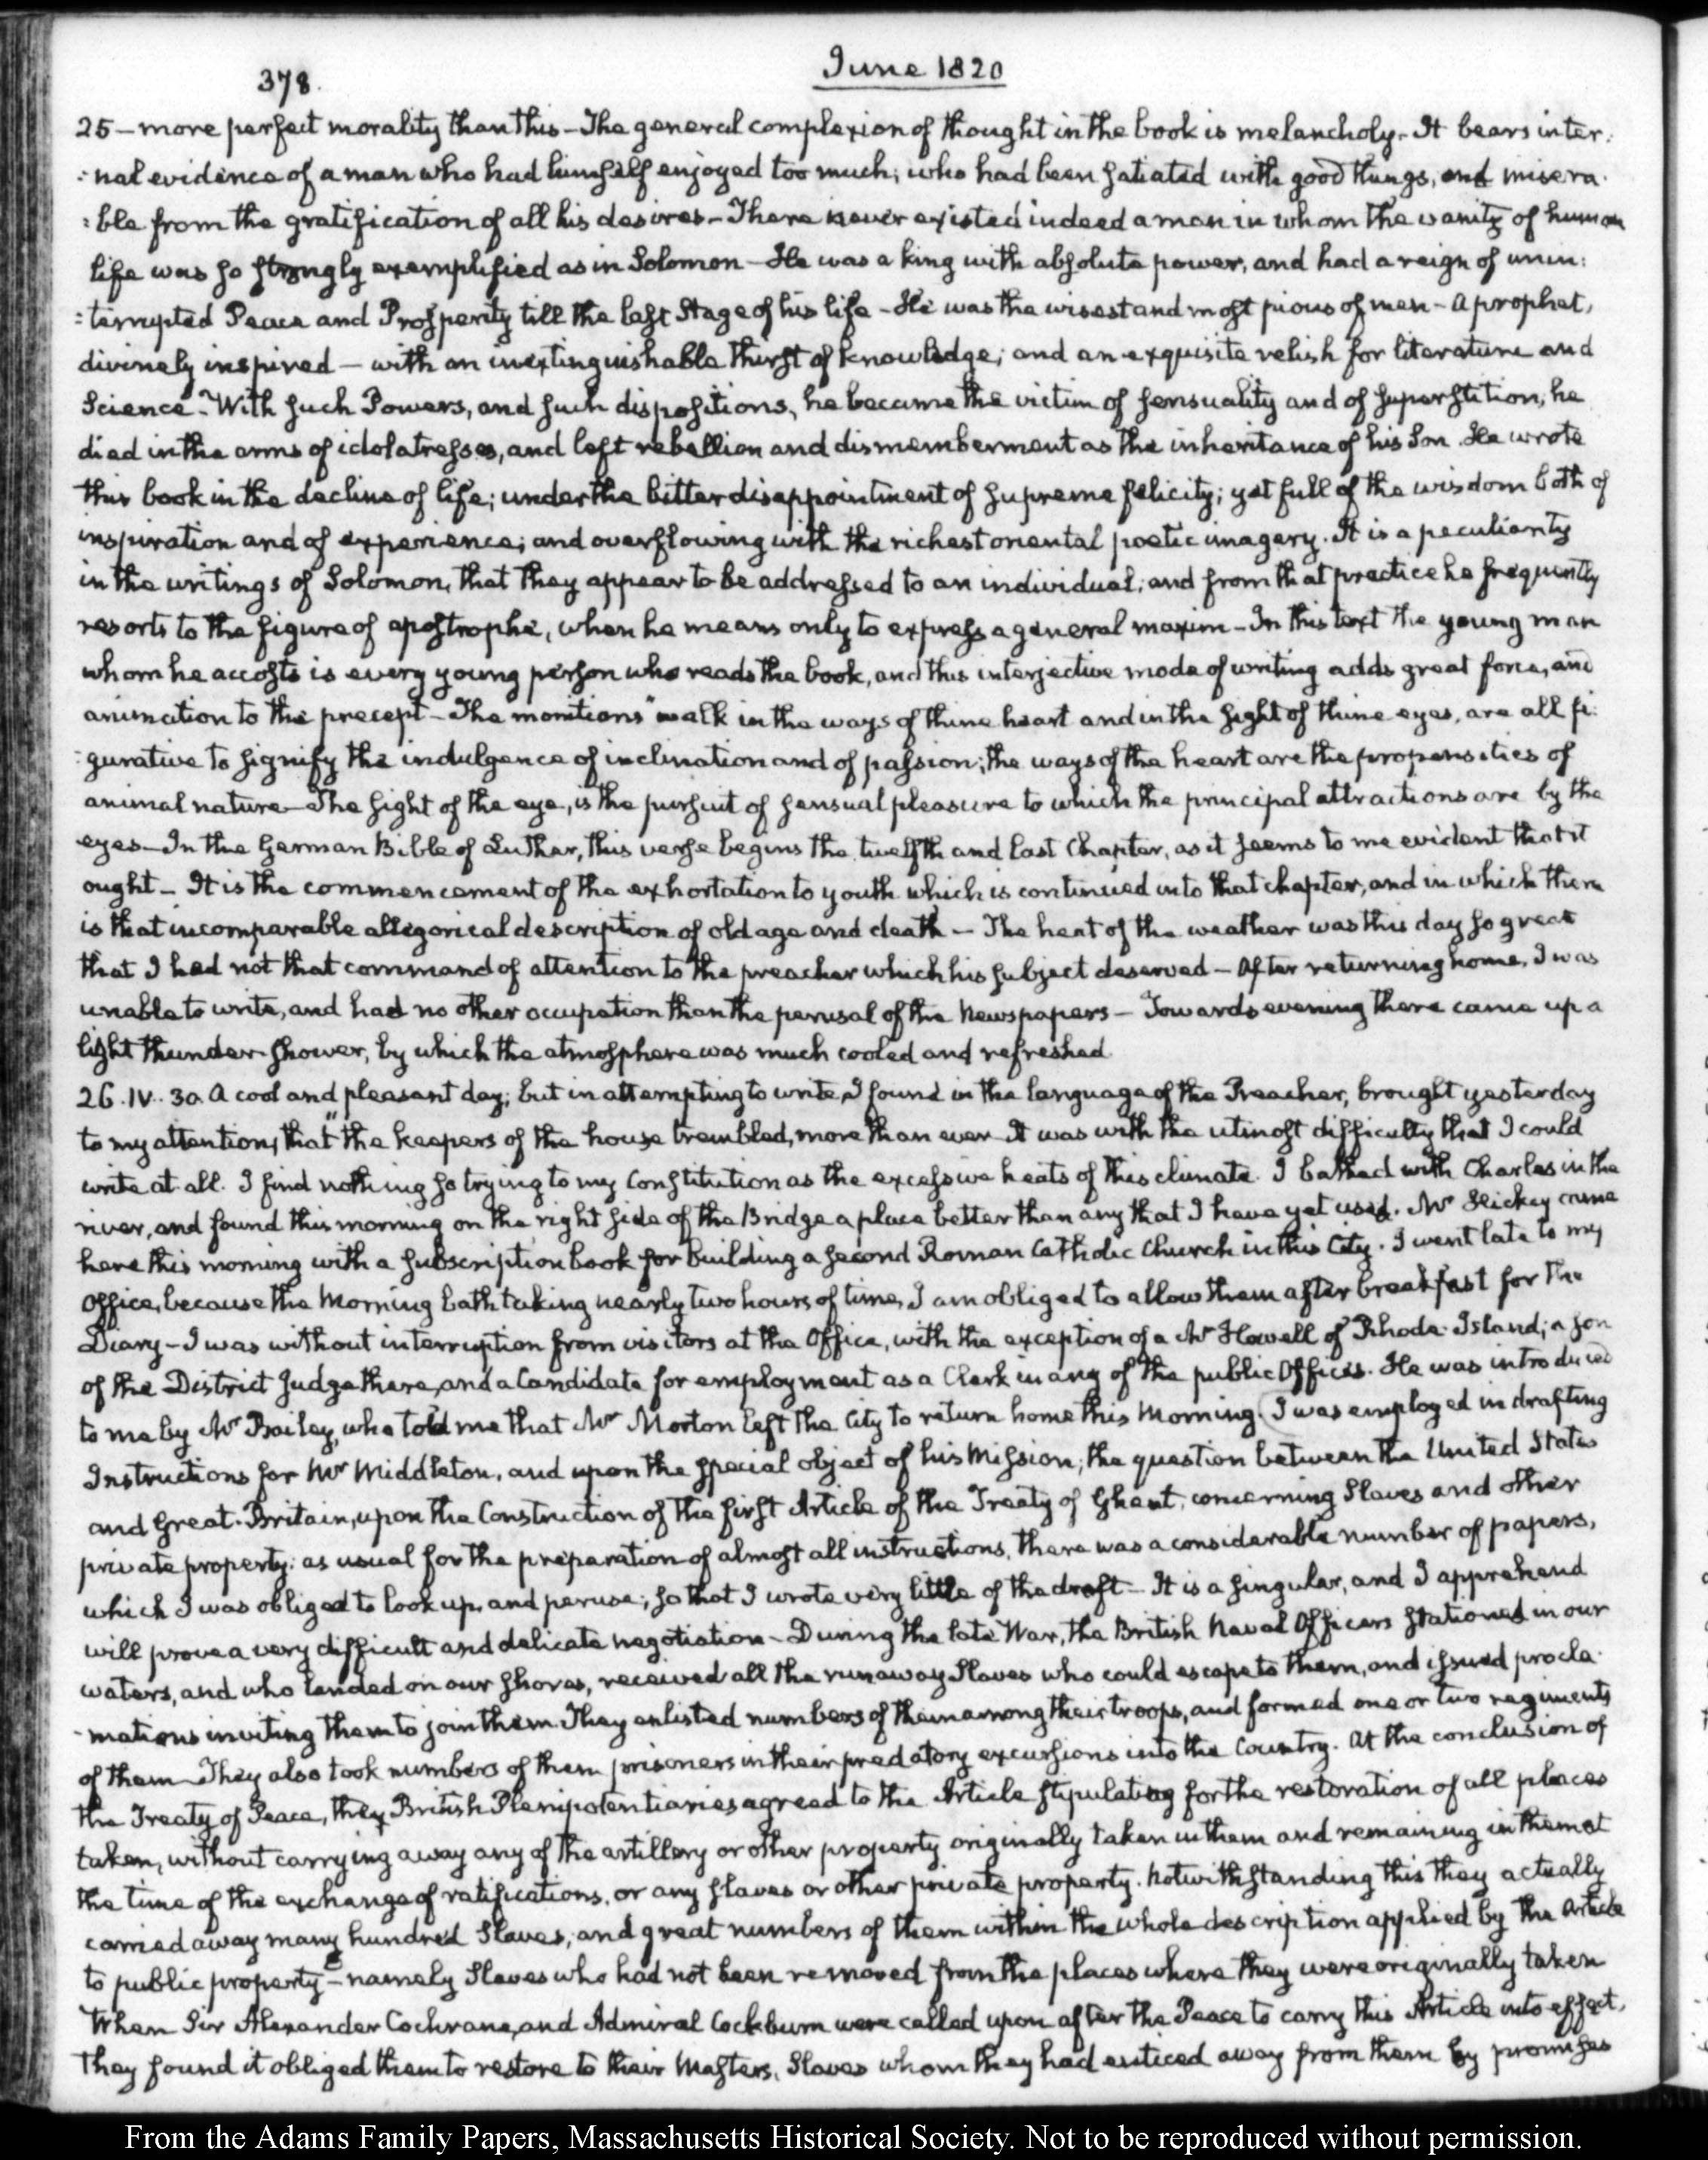 378.
June 1820
25 — more perfect morality than this — The general complexion of thought in the book is melancholy. It bears inter:
:nal evidence of a man who had himself enjoyed too much; who had been satiated with good things, and misera:
:ble from the gratification of all his desires — There never existed indeed a man in whom the vanity of human
life was so strongly exemplified as in Solomon — He was a king with absolute power, and had a reign of unin:
:terrupted Peace and Prosperity till the last Stage of his life — He was the wisest and most pious of men — a prophet,
divinely inspired — with an inextinguishable thirst of knowledge; and an exquisite relish for literature and
Science. With such Powers, and such dispositions, he became the victim of sensuality and of superstition; he
died in the arms of idolatresses, and left rebellion and dismemberment as the inheritance of his Son. He wrote
this book in the decline of life; under the bitter disappointment of supreme felicity; yet full of the wisdom both of
inspiration and of experience; and overflowing with the richest oriental poetic imagery. It is a peculiarity
in the writings of Solomon, that they appear to be addressed to an individual; and from that practice he frequently
resorts to the figure of apostrophe, when he means only to express a general maxim — In this text the young man
whom he accosts is every young person who reads the book, and this interjective mode of writing adds great force, and
animation to the precept — The monitions "walk in the ways of thine heart and in the sight of thine eyes, are all fi:
:gurative to signify the indulgence of inclination and of passion; the ways of the heart are the propensities of
animal nature — The sight of the eye, is the pursuit of sensual pleasure to which the principal attractions are by the
eyes — In the German Bible of Luther, this verse begins the twelfth and last Chapter, as it seems to me evident that it
ought — It is the commencement of the exhortation to youth which is continued into that chapter, and in which there
is that incomparable allegorical description of old age and death — The heat of the weather was this day so great
that I had not that command of attention to the preacher which his subject deserved — After returning home, I was
unable to write, and had no other occupation than the perusal of the Newspapers — Towards evening there came up a
light thunder-shower, by which the atmosphere was much cooled and refreshed.
26. IV. 30. A cool and pleasant day; but in attempting to write I found in the language of the Preacher, brought yesterday
to my attention, that "the keepers of the house trembled, more than ever — It was with the utmost difficulty that I could
write at all. I find nothing so trying to my Constitution as the excessive heats of this climate. I bathed with Charles in the
river, and found this morning on the right side of the Bridge a place better than any that I have yet used. Mr Hickey came
here this morning with a subscription book for building a second Roman Catholic Church in this City. I went late to my
Office, because the Morning bath taking nearly two hours of time, I am obliged to allow them after breakfast for the
Diary — I was without interruption from visitors at the Office, with the exception of a Mr Howell of Rhode-Island; a son
of the District Judge there, and a Candidate for employment as a Clerk in any of the public Offices. He was introduced
to me by Mr Bailey, who told me that Mr Morton left the City to return home this Morning. I was employed in drafting
Instructions for Mr Middleton, and upon the special object of his Mission; the question between the United States
and Great-Britain, upon the Construction of the first Article of the Treaty of Ghent, concerning Slaves and other
private property: as usual for the preparation of almost all instructions, there was a considerable number of papers,
which I was obliged to look up, and peruse; so that I wrote very little of the draft — It is a singular, and I apprehend
will prove a very difficult and delicate negotiation — During the late War, the British Naval Officers stationed in our
waters, and who landed on our shores, received all the runaway Slaves who could escape to them, and issued procla:
:mations inviting them to join them. They enlisted numbers of them among their troops, and formed one or two regiments
of them — They also took numbers of them prisoners in their predatory excursions into the Country. At the conclusion of
the Treaty of Peace, the British Plenipotentiaries agreed to the Article stipulating for the restoration of all places
taken, without carrying away any of the artillery or other property originally taken in them and remaining in them at
the time of the exchange of ratifications, or any slaves or other private property. Notwithstanding this they actually
carried away many hundred Slaves, and great numbers of them within the whole description applied by the Article
to public property — namely Slaves who had not been removed from the places where they were originally taken
When Sir Alexander Cochrane, and Admiral Cockburn were called upon after the Peace to carry this Article into effect,
They found it obliged them to restore to their Masters, Slaves whom they had enticed away from them by promises
From the Adams Family Papers, Massachusetts Historical Society. Not to be reproduced without permission.